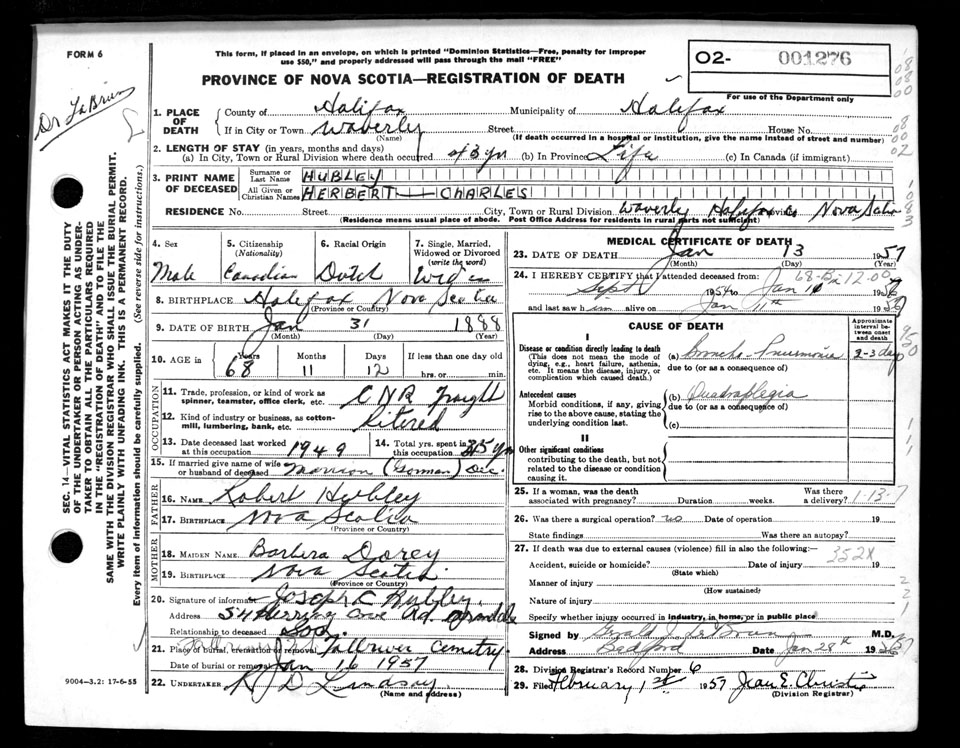 FORM 6
This form, if placed in an envelope, on which is printed "Dominion Statistics—Free, penalty for improper
use $50," and properly addressed will pass through the mail "FREE"
PROVINCE OF NOVA SCOTIA—REGISTRATION OF DEATH
02- 001276
For use of the Department only
Dr LeBrun
SEC. 14—VITAL STATISTICS ACT MAKES IT THE DUTY
OF THE UNDERTAKER OR PERSON ACTING AS UNDER-
TAKER TO OBTAIN ALL THE PARTICULARS REQUIRED
IN THE "REGISTRATION OF DEATH" AND TO FILE THE
SAME WITH THE DIVISION REGISTRAR WHO SHALL ISSUE THE BURIAL PERMIT.
WRITE PLAINLY WITH UNFADING INK. THIS IS A PERMANENT RECORD.
Every item of information should be carefully supplied. (See reverse side for instructions.)
1. PLACE OF DEATH
County of Halifax Municipality of Halifax
If in City or Town Waverly Street House No.
(Name) (If death occurred in a hospital or institution, give the name instead of street and number)
2. LENGTH OF STAY (in years, months and days)
(a) In City, Town or Rural Division where death occurred 3 yr (b) In Province Life (c) In Canada (if immigrant)
3. PRINT NAME OF DECEASED
Surname or Last Name HUBLEY
All Given or Christian Names HERBERT — CHARLES
RESIDENCE No. Street City, Town or Rural Division Waverly Halifax Co Province Nova Scotia
(Residence means usual place of abode. Post Office Address for residents in rural parts not sufficient)
4. Sex Male
5. Citizenship (Nationality) Canadian
6. Racial Origin Dutch
7. Single, Married, Widowed or Divorced (write the word)
8. BIRTHPLACE Halifax Nova Scotia
(Province or Country)
9. DATE OF BIRTH Jan 31 1888
(Month) (Day) (Year)
10. AGE in Years 68 Months 11 Days 12 If less than one day old hrs. or min.
OCCUPATION
11. Trade, profession, or kind of work as spinner, teamster, office clerk, etc. CNR Freight
12. Kind of industry or business, as cotton-mill, lumbering, bank, etc. Retired
13. Date deceased last worked at this occupation 1949
14. Total yrs. spent in this occupation 35 yr
15. If married give name of wife or husband of deceased (Gorman) Dec.
FATHER
16. NAME Robert Hubley
17. BIRTHPLACE Nova Scotia
(Province or Country)
MOTHER
18. MAIDEN NAME Barbera Dorey
19. BIRTHPLACE Nova Scotia
(Province or Country)
20. Signature of informant Joseph C Hubley
Address 54 Herring Cove Rd. Armdale
Relationship to deceased Son.
21. Place of burial, cremation or removal Cemetry
Date of burial or removal Jan 16 1957
22. UNDERTAKER K D Lindsay
(Name and address)
9004—3.2: 17-6-55
MEDICAL CERTIFICATE OF DEATH
23. DATE OF DEATH Jan 13 1957
(Month) (Day) (Year)
24. I HEREBY CERTIFY that I attended deceased from:
Sept 1956 to Jan
and last saw him alive on Jan 11th 19
CAUSE OF DEATH
Approximate interval between onset and death
I
Disease or condition directly leading to death
(This does not mean the mode of dying, e.g., heart failure, asthenia, etc. It means the disease, injury, or complication which caused death.)
(a) Broncho-Pneumonia 2-3 day
due to (or as a consequence of)
Antecedent causes
Morbid conditions, if any, giving rise to the above cause, stating the underlying condition last.
(b) Quadraplegia
due to (or as a consequence of)
(c)
II
Other significant conditions
contributing to the death, but not related to the disease or condition causing it.
25. If a woman, was the death associated with pregnancy? Duration weeks. Was there a delivery?
1-13-7
26. Was there a surgical operation? no Date of operation 19
State findings Was there an autopsy?
27. If death was due to external causes (violence) fill in also the following:—
352X
Accident, suicide or homicide? Date of injury 19
(State which)
Manner of injury
(How sustained)
Nature of injury
Specify whether injury occurred in industry, in home, or in public place
Signed by Gerald J. LeBrun M.D.
Address Bedford Date Jan 28th 1957
28. Division Registrar's Record Number 6
29. Filed February 1st 1957 Jean E. Christie
(Division Registrar)